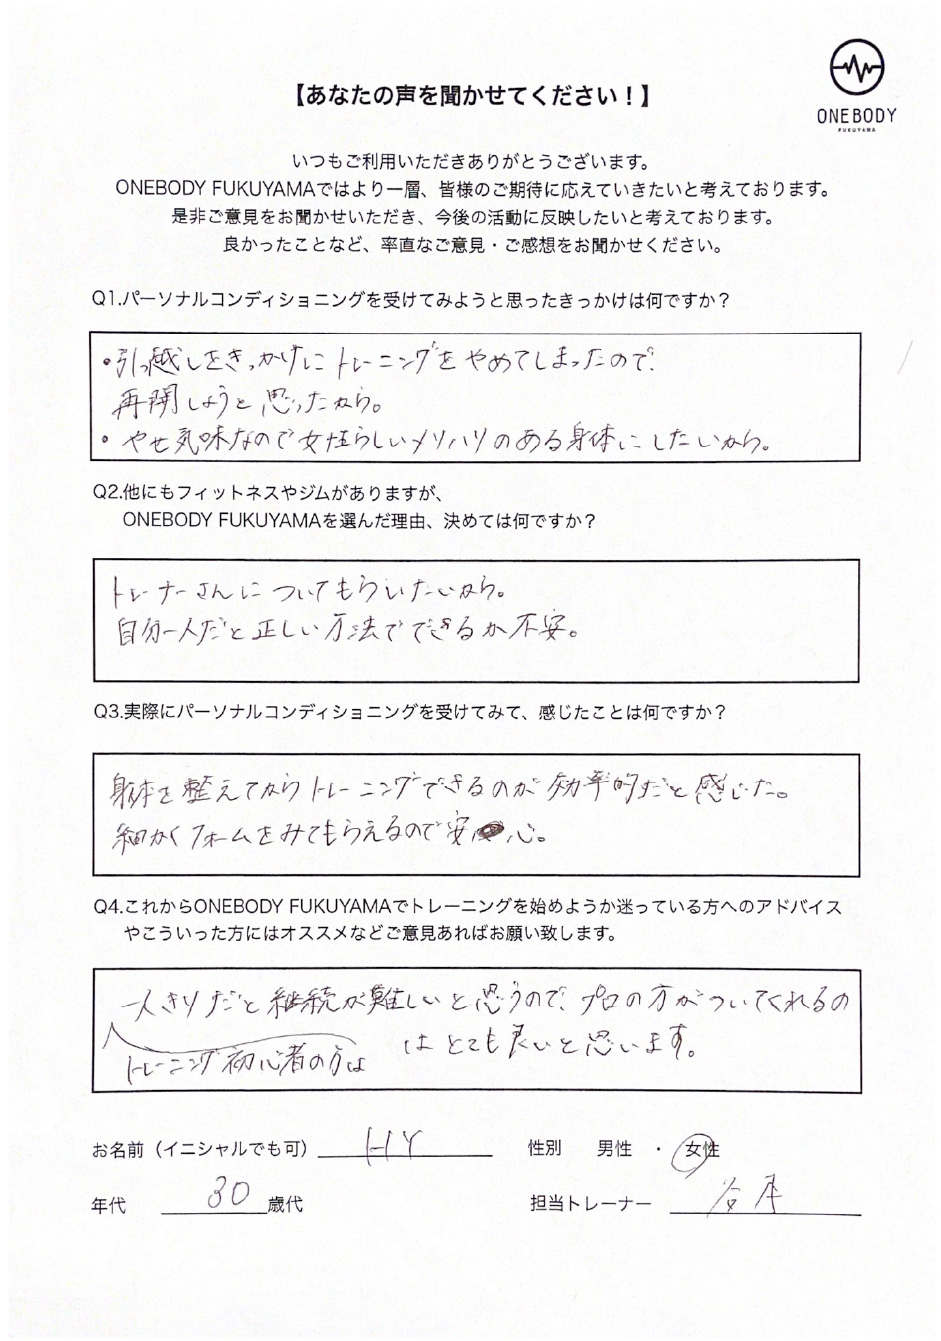 ONE BODY
FUKUYAMA
【あなたの声を聞かせてください！】
いつもご利用いただきありがとうございます。
ONEBODY FUKUYAMAではより一層、皆様のご期待に応えていきたいと考えております。
是非ご意見をお聞かせいただき、今後の活動に反映したいと考えております。
良かったことなど、率直なご意見・ご感想をお聞かせください。
Q1.パーソナルコンディショニングを受けてみようと思ったきっかけは何ですか？
・引っ越しをきっかけにトレーニングをやめてしまったので、
再開しようと思ったから。
・やせ気味なので女性らしいメリハリのある身体にしたいから。
Q2.他にもフィットネスやジムがありますが、
ONEBODY FUKUYAMAを選んだ理由、決めては何ですか？
トレーナーさんについてもらいたいから。
自分一人だと正しい方法でできるか不安。
Q3.実際にパーソナルコンディショニングを受けてみて、感じたことは何ですか？
身体を整えてからトレーニングできるのが効率的だと感じた。
細かくフォームをみてもらえるので安心。
Q4.これからONEBODY FUKUYAMAでトレーニングを始めようか迷っている方へのアドバイス
やこういった方にはオススメなどご意見あればお願い致します。
一人きりだと継続が難しいと思うので、プロの方がついてくれるの
トレーニング初心者の方は
はとても良いと思います。
お名前（イニシャルでも可） HY 性別 男性 ・ 女性
年代 30 歳代 担当トレーナー